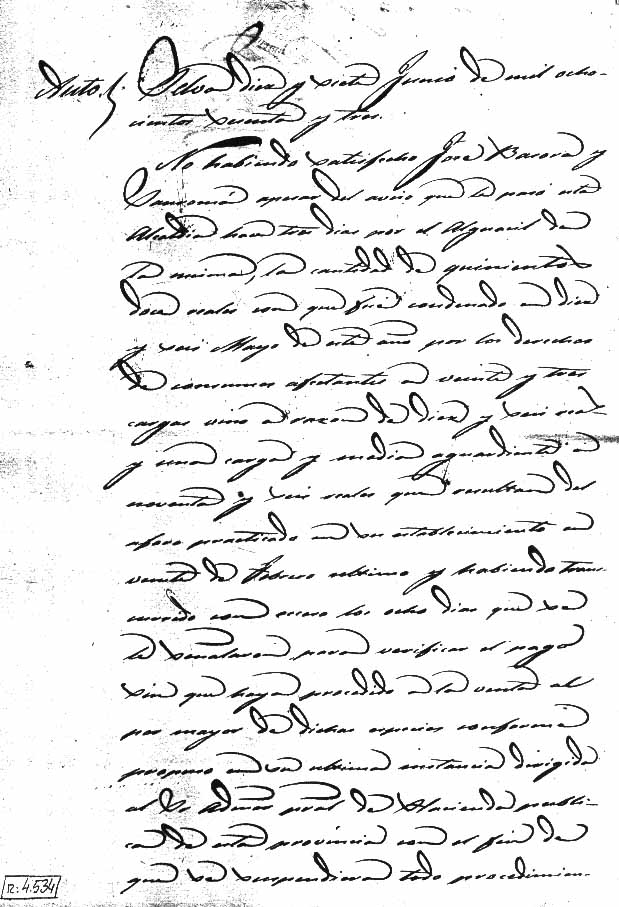 Auto. Selva diez y siete Junio de mil ocho-
cientos sesenta y tres.
No habiendo satisfecho José Barora y
Sansomá apesar del aviso que le pasó esta
Alcaldia hace tres dias por el Alguacil de
la misma, la cantidad de quinientos
doce reales con que fué condenado en diez
y seis Mayo de este año por los derechos
de consumos afectantes a veinte y tres
cargas vino a razon de diez y seis rea-
y una carga y media aguardiente a
noventa y seis reales que resultaron del
aforo practicado en su establecimiento en
veinte de Febrero ultimo y habiendo trans-
currido con exceso los ocho dias que se
le señalaron para verificar el pago
sin que haya procedido a la venta al
por mayor de dichas especies conforme
propuso en su ultima instancia dirigida
al Sr Admor pral de Hacienda publi-
ca de esta provincia con el fin de
que se suspendiera todo procedimien-
n: 4.534